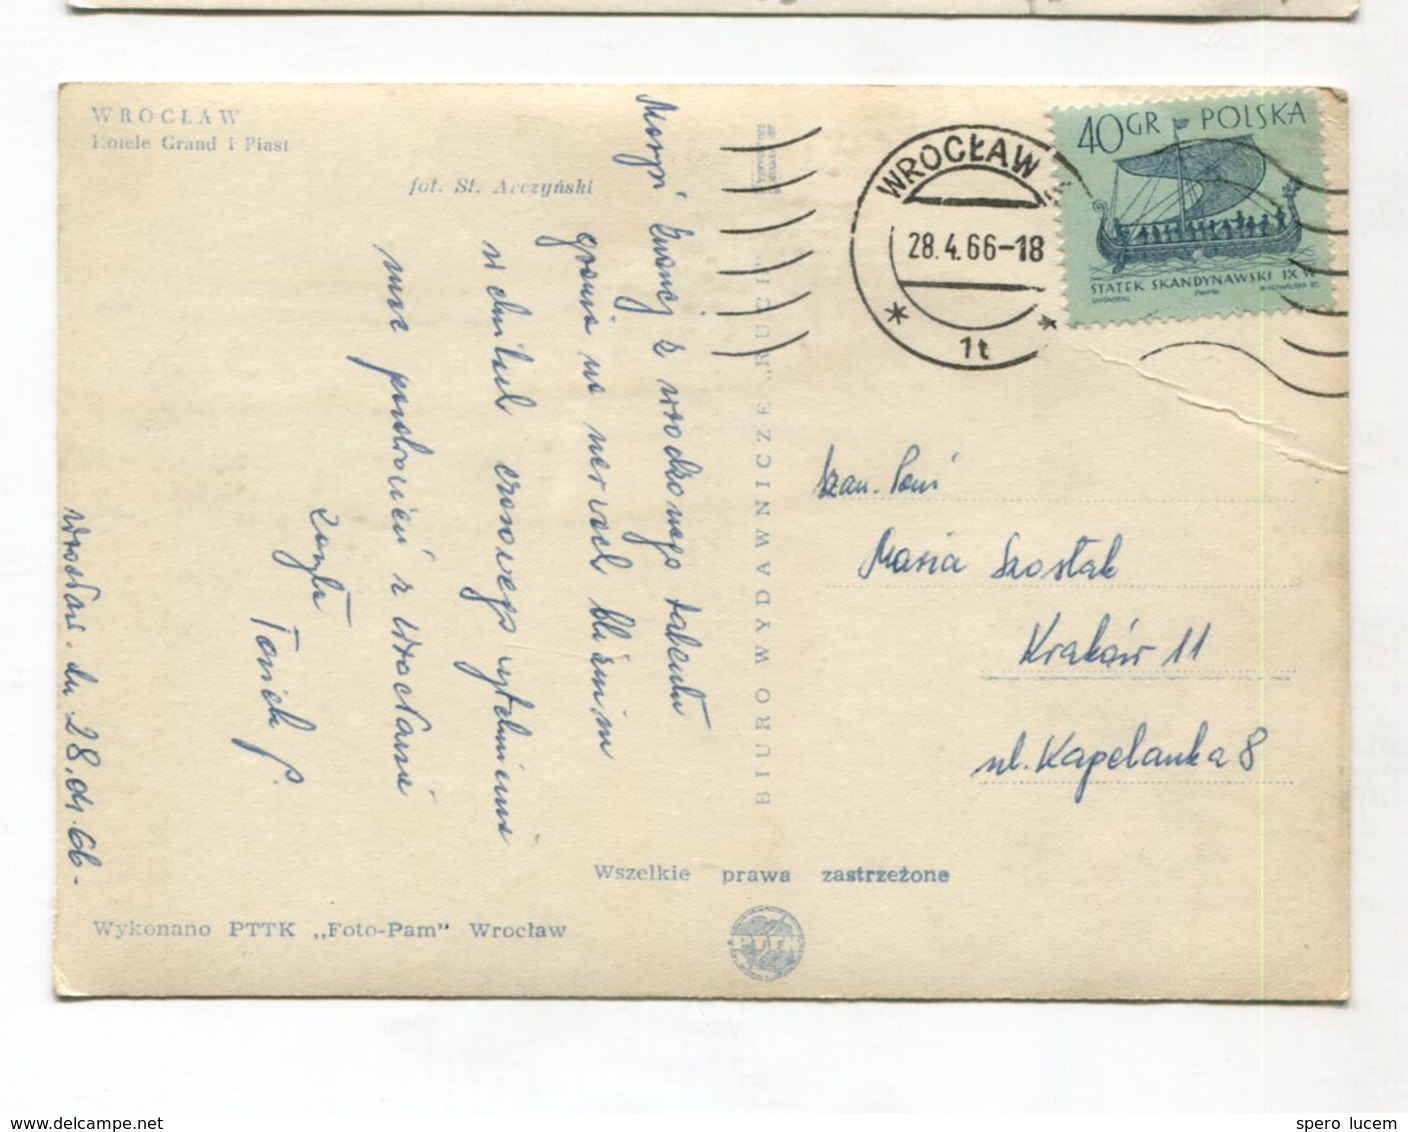 WROCŁAW
Hotele Grand i Piast
fot. St. Arczyński
Marysi znanej z wrodzonego talentu
grania na nerwach bliźnim
w chwilach czarowego
moc pozdrowień z Wrocławia
zasyła
Tonich P.
Wrocław. dn 28.04.66-
Wykonano PTTK „Foto-Pam" Wrocław
Wszelkie prawa zastrzeżone
PTTK
BIURO WYDAWNICZE „RUCH"
WROCŁAW
28.4.66-18
1t
40GR POLSKA
STATEK SKANDYNAWSKI IX W
Szan. Pani
Maria Szostak
Kraków 11
ul. Kapelanka 8
spero lucem